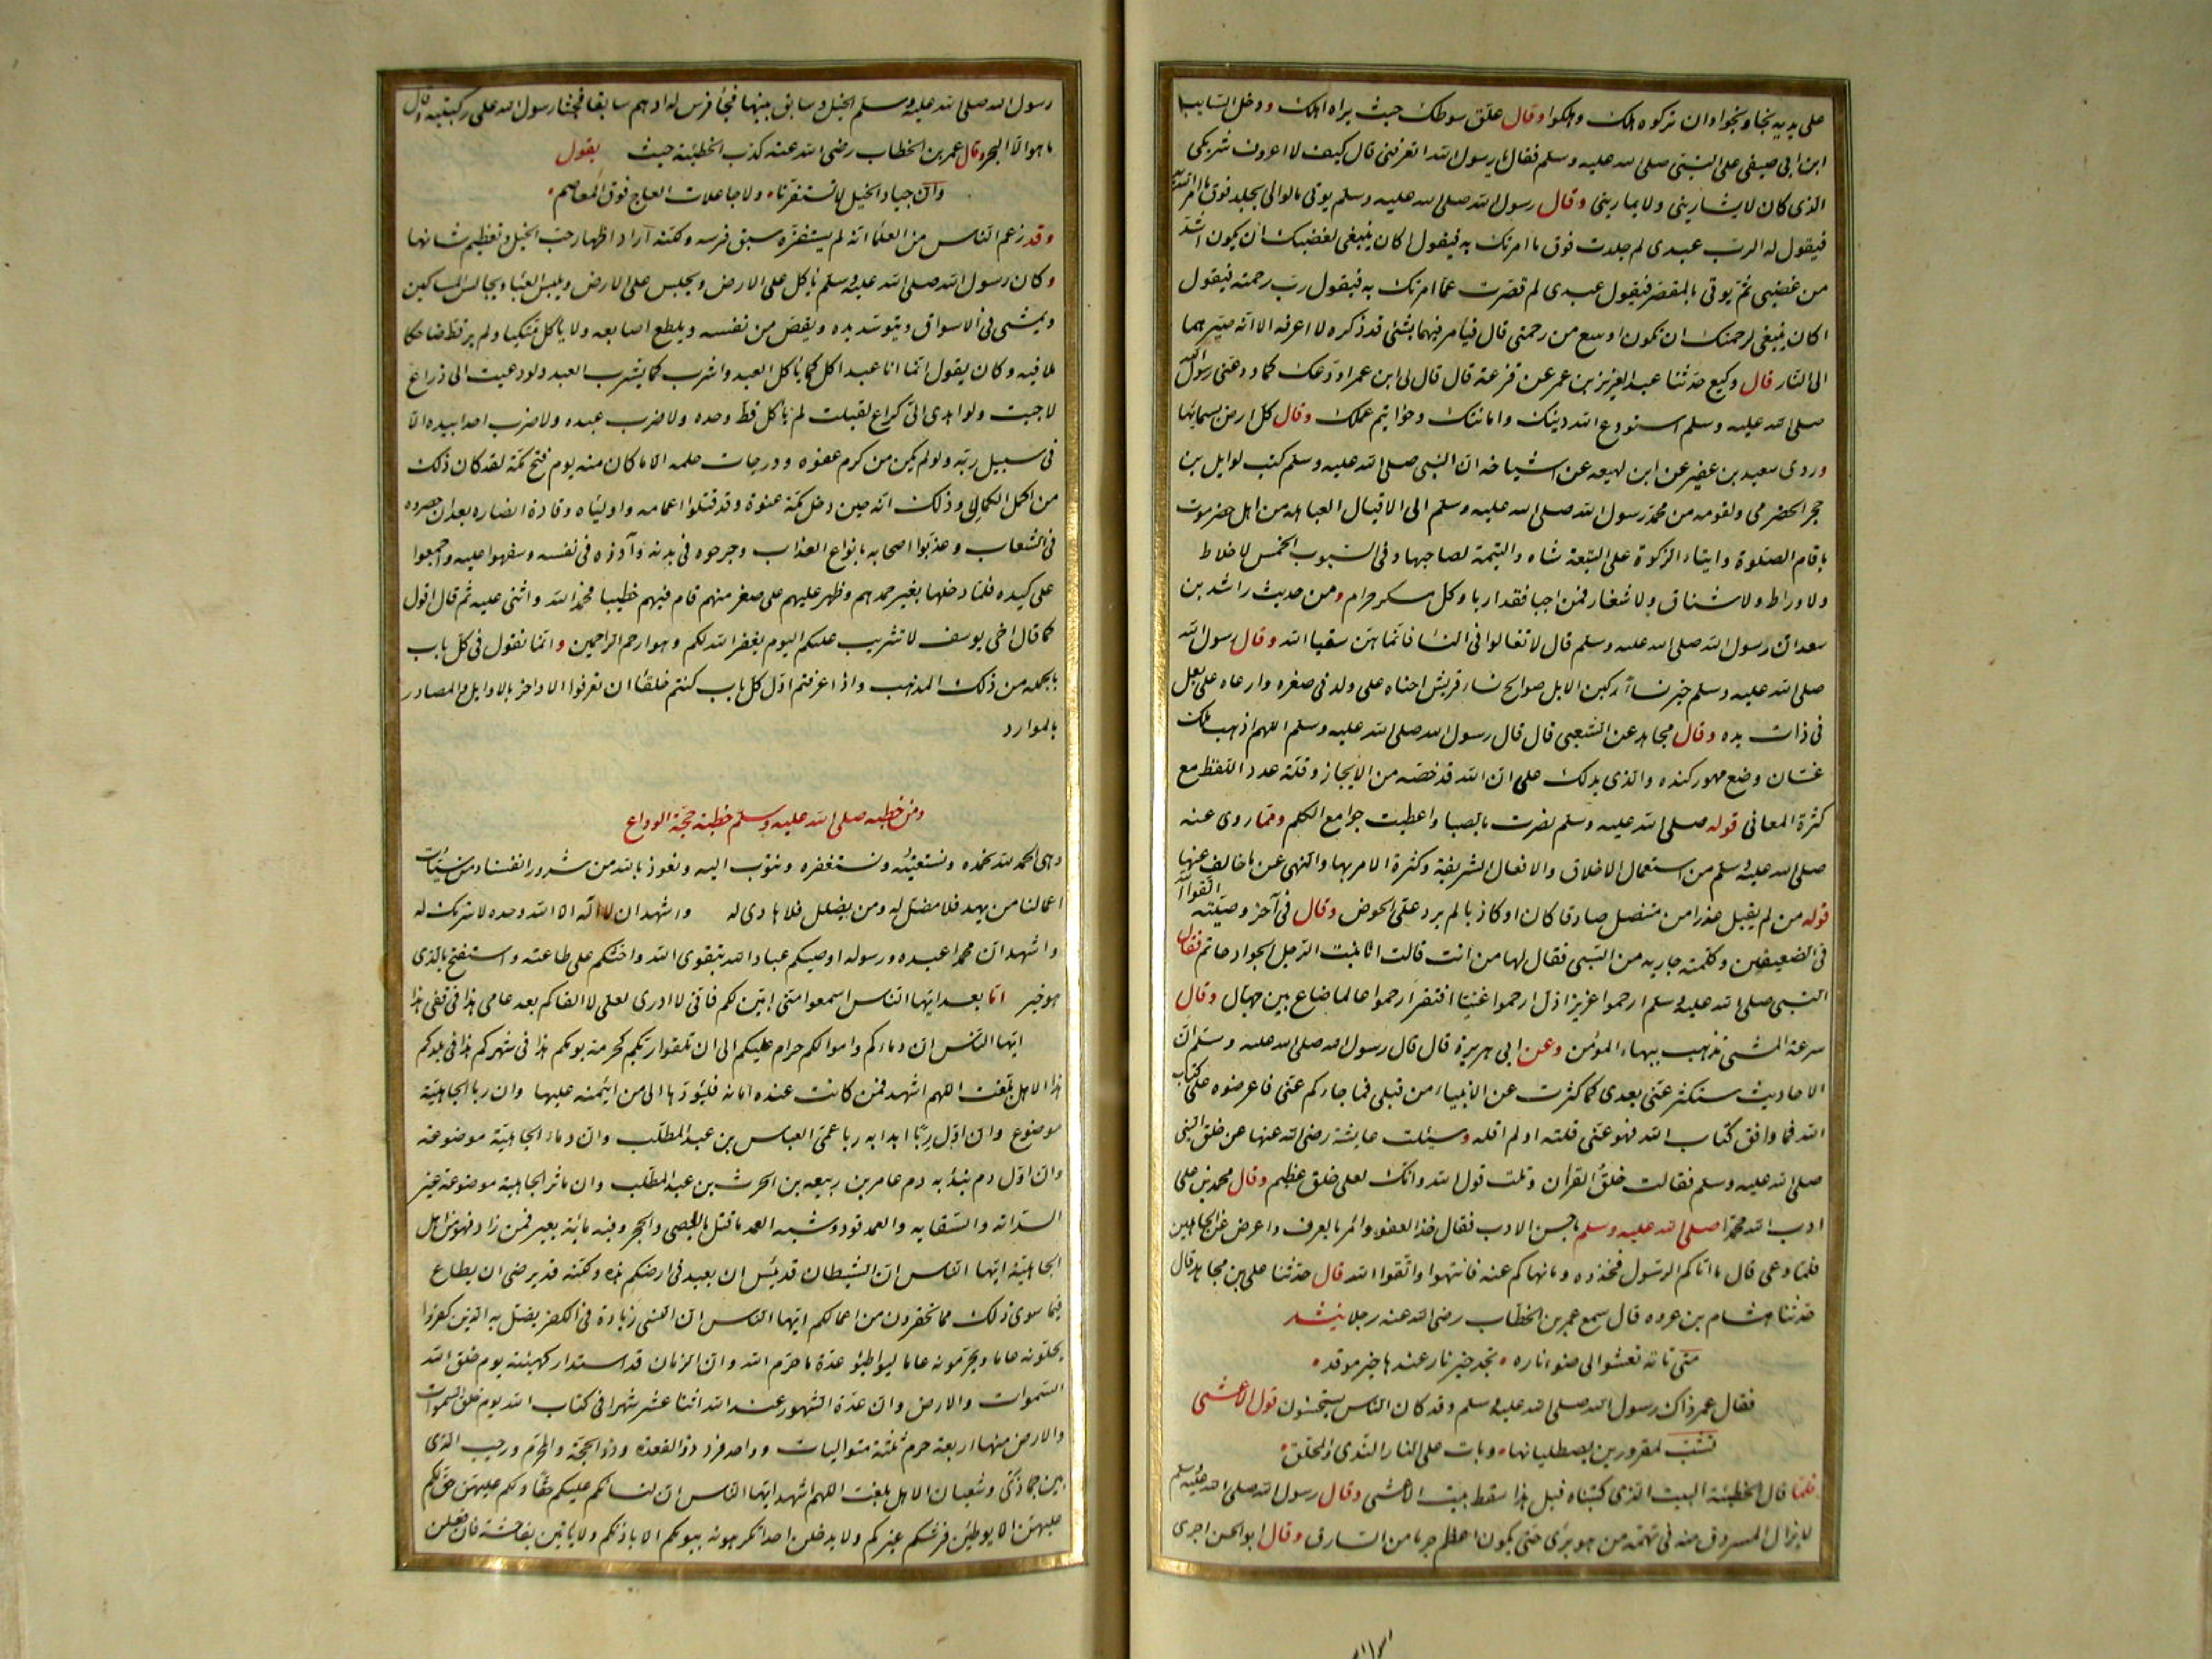 على يديه نجا ونجوا وان تركوه هلك وهلكوا وقال علق سوطك حيث يراه اهلك ودخل السايب
ابن ابي صيفي على النبي صلى الله عليه وسلم فقال يا رسول الله اتعرفني قال كيف لا اعرف شريكي
الذي كان لا يشاريني ولا يماريني وقال رسول الله صلى الله عليه وسلم يوتى بالوالي يجلد فوق ما امر الله به
فيقول له الرب عبدي لم جلدت فوق ما امرتك به فيقول اكان ينبغي لغضبك ان يكون اشد
من غضبي ثم يوتى بالمقصر فيقول عبدي لم قصرت عما امرتك به فيقول رب رحمته فيقول
اكان ينبغي لرحمتك ان تكون اوسع من رحمتي قال فيامر فيهما بشئ قد ذكره لا اعرفه الا انه صيرهما
الى النار قال وكيع حدثنا عبد العزيز بن عمر عن قزعة قال قال لي ابن عمر اودعك كما ودعني رسول الله
صلى الله عليه وسلم استودع الله دينك وامانتك وخواتيم عملك وقال كل ارض بسمايها
وروى سعيد بن عفير عن ابن لهيعه عن اشياخه ان النبي صلى الله عليه وسلم كتب لوايل بن
حجر الحضرمي ولقومه من محمد رسول الله صلى الله عليه وسلم الى الاقيال العباهله من اهل حضرموت
باقام الصلوة وايتاء الزكوة على التيعة شاه والتيمة لصاحبها وفي السيوب الخمس لا خلاط
ولا وراط ولا شناق ولا شغار فمن اجبا فقد اربا وكل مسكر حرام ومن حديث راشد بن
سعد ان رسول الله صلى الله عليه وسلم قال لا تغالوا في النسا فانما هن سقيا الله وقال رسول الله
صلى الله عليه وسلم خير نساء ركبن الابل صوالح نساء قريش احناه على ولد في صغره وارعاه على بعل
في ذات يده وقال مجاهد عن الشعبي قال قال رسول الله صلى الله عليه وسلم اللهم اذهب ملك
غسان وضع مهور كنده والذي يدلك على ان الله قد خصه من الايجاز وقلة عدد اللفظ مع
كثرة المعاني قوله صلى الله عليه وسلم نصرت بالصبا واعطيت جوامع الكلم ومما روى عنه
صلى الله عليه وسلم من استعمال الاخلاق والافعال الشريفة وكثرة الامر بها والنهي عن ما خالف عنها
قوله من لم يقبل عذرا من متنصل صادقا كان او كاذبا لم يرد على الحوض وقال في آخر وصيته اتقوا الله
في الضعيفين وكلمته جاريه من السبي فقال لها من انت قالت انا بنت الرجل الجواد حاتم فقال
النبي صلى الله عليه وسلم ارحموا عزيزا ذل ارحموا غنيا افتقر ارحموا عالما ضاع بين جهال وقال
سرعة المشي تذهب ببهاء المؤمن وعن ابي هريرة قال قال رسول الله صلى الله عليه وسلم ان
الاحاديث ستكثر عني بعدي كما كثرت عن الانبياء من قبلي فما جاءكم عني فاعرضوه على كتاب
الله فما وافق كتاب الله فهو عني قلته او لم اقله وسيئلت عايشة رضي الله عنها عن خلق النبي
صلى الله عليه وسلم فقالت خلق القرآن وتلت قول الله وانك لعلى خلق عظيم وقال محمد بن علي
ادب الله محمدا صلى الله عليه وسلم باحسن الادب فقال خذ العفو وامر بالعرف واعرض عن الجاهلين
فلما وعى قال ما اتاكم الرسول فخذوه وما نهاكم عنه فانتهوا واتقوا الله قال حدثنا علي بن مجاهد قال
حدثنا هشام بن عروه قال سمع عمر بن الخطاب رضي الله عنه رجلا ينشد
متى تاته تعشوا الى ضوء ناره تجد خير نار عندها خير موقد
فقال عمر ذاك رسول الله صلى الله عليه وسلم وقد كان الناس يستحسنون قول الاعشى
تشب لمقرورين يصطليانها وبات على النار الندى والمحلق
فلما قال الحطيئة البيت الذي كتبناه قبل هذا سقط بيت الاعشى وقال رسول الله صلى الله عليه وسلم
لا يزال المسروق منه في تهمة من هو برى حتى يكون اعظم جرما من السارق وقال ابو الحسن اجرى
رسول الله صلى الله عليه وسلم الخيل وسابق بينها فجأ فرس له ادهم سابقا فجثا رسول الله على ركبتيه وقال
ما هو الا البحر وقال عمر بن الخطاب رضي الله عنه كذب الحطيئة حيث يقول
وان جياد الخيل لا تستفزنا ولا جاعلات العاج فوق المعاصم
وقد زعم الناس من العلما انه لم يستفزه سبق فرسه ولكنه اراد اظهار حب الخيل وتعظيم شانها
وكان رسول الله صلى الله عليه وسلم ياكل على الارض ويجلس على الارض ويلبس العبا ويجالس المساكين
ويمشي في الاسواق ويتوسد يده ويقص من نفسه ويلطع اصابعه ولا ياكل متكيا ولم ير قط ضاحكا
ملا فيه وكان يقول انما انا عبد اكل كما ياكل العبد واشرب كما يشرب العبد ولو دعيت الى ذراع
لاجبت ولو اهدى الى كراع لقبلت لم ياكل قط وحده ولا ضرب عبده ولا ضرب احدا بيده الا
في سبيل ربه ولو لم يكن من كرم عفوه ودرجات حلمه الا ما كان منه يوم فتح مكة لقد كان ذلك
من اكمل الكمال وذلك انه حين دخل مكة عنوة وقد قتلوا اعمامه واولياه وقادة انصاره بعد ان حصروه
في الشعاب وعذبوا اصحابه بانواع العذاب وجرحوه في بدنه وآذوه في نفسه وسفهوا عليه واجمعوا
على كيده فلما دخلها بغير حمدهم وظهر عليهم على صغر منهم قام فيهم خطيبا فحمد الله واثنى عليه ثم قال اقول
كما قال اخي يوسف لا تثريب عليكم اليوم يغفر الله لكم وهو ارحم الراحمين وانما نقول في كل باب
بالجمله من ذلك المذهب واذا عرفتم اول كل باب كنتم خلقا ان تعرفوا الاواخر بالاوايل والمصادر
بالموارد
ومن خطبه صلى الله عليه وسلم خطبة حجة الوداع
وهي الحمد لله نحمده ونستعينه ونستغفره ونتوب اليه ونعوذ بالله من شرور انفسنا ومن سيئات
اعمالنا من يهد فلا مضل له ومن يضلل فلا هادي له واشهد ان لا اله الا الله وحده لا شريك له
واشهد ان محمدا عبده ورسوله اوصيكم عباد الله بتقوى الله واحثكم على طاعته واستفتح بالذي
هو خير اما بعد ايها الناس اسمعوا مني ابين لكم فاني لا ادري لعلي لا القاكم بعد عامي هذا في موقفي هذا
ايها الناس ان دماءكم واموالكم حرام عليكم الى ان تلقوا ربكم كحرمة يومكم هذا في شهركم هذا في بلدكم
هذا الا هل بلغت اللهم اشهد فمن كانت عنده امانه فليؤدها الى من ايتمنه عليها وان ربا الجاهلية
موضوع وان اول ربا ابدا به ربا عمي العباس بن عبد المطلب وان دماء الجاهلية موضوعه
وان اول دم يبدأ به دم عامر بن ربيعه بن الحرث بن عبد المطلب وان ماثر الجاهلية موضوعة غير
السدانه والسقايه والعمد قود وشبه العمد ما قتل بالعصى والحجر وفيه ماية بعير فمن زاد فهو من اهل
الجاهلية ايها الناس ان الشيطان قد يئس ان يعبد في ارضكم هذه ولكنه قد يرضى ان يطاع
فيما سوى ذلك مما تحقرون من اعمالكم ايها الناس ان النسي زيادة في الكفر يضل به الذين كفروا
يحلونه عاما ويحرمونه عاما ليواطئو عدة ما حرم الله وان الزمان قد استدار كهيئته يوم خلق الله
السموات والارض وان عدة الشهور عند الله اثنا عشر شهرا في كتاب الله يوم خلق السموات
والارض منها اربعة حرم ثلثة متواليات وواحد فرد ذو القعدة وذو الحجة والمحرم ورجب الذي
بين جمادى وشعبان الا هل بلغت اللهم اشهد ايها الناس ان لنسائكم عليكم حقا ولكم عليهن حق لكم
عليهن الا يوطئن فرشكم غيركم ولا يدخلن احدا تكرهونه بيوتكم الا باذنكم ولا ياتين بفاحشة فان فعلن